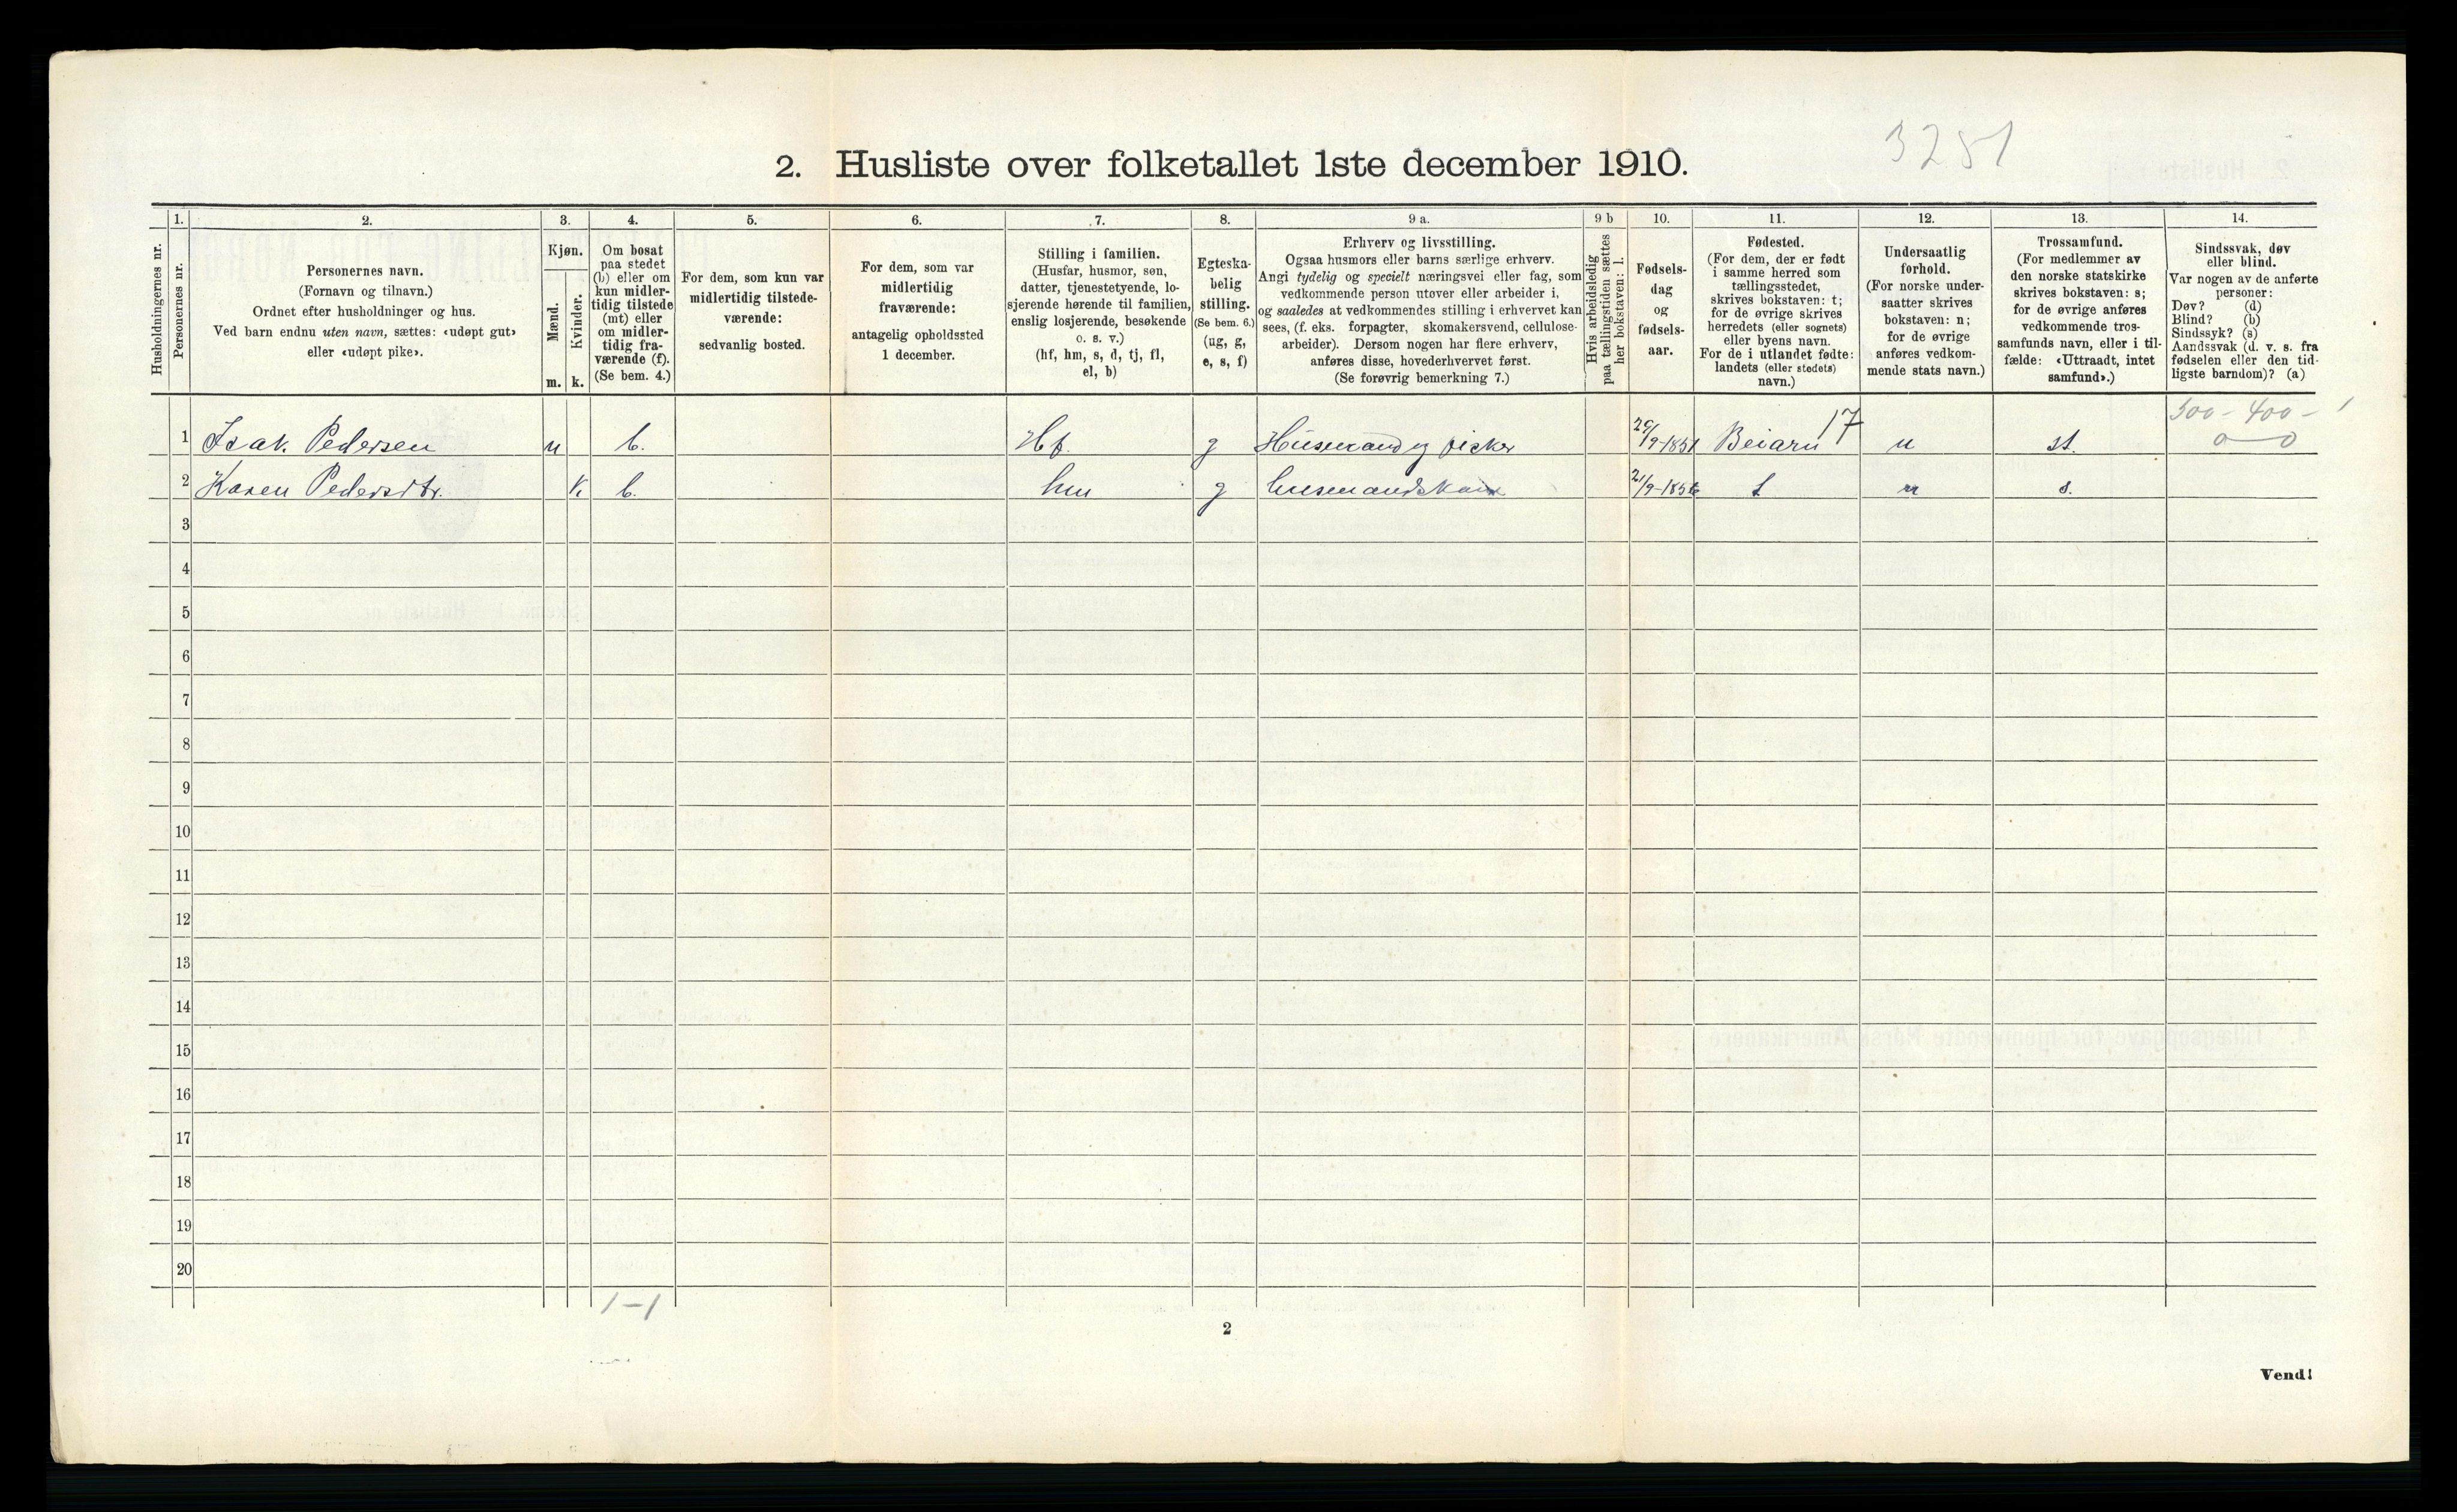 3251
2. Husliste over folketallet 1ste december 1910.
Husholdningernes nr.
1.
Personernes nr.
2.
Personernes navn.
(Fornavn og tilnavn.)
Ordnet efter husholdninger og hus.
Ved barn endnu uten navn, sættes: «udøpt gut»
eller «udøpt pike».
3.
Kjøn.
Mænd.
Kvinder.
m. k.
4.
Om bosat
paa stedet
(b) eller om
kun midler-
tidig tilstede
(mt) eller
om midler-
tidig fra-
værende (f).
(Se bem. 4.)
5.
For dem, som kun var
midlertidig tilstede-
værende:
sedvanlig bosted.
6.
For dem, som var
midlertidig
fraværende:
antagelig opholdssted
1 december.
7.
Stilling i familien.
(Husfar, husmor, søn,
datter, tjenestetyende, lo-
sjerende hørende til familien,
enslig losjerende, besøkende
o. s. v.)
(hf, hm, s, d, tj, fl,
el, b)
8.
Egteska-
belig
stilling.
(Se bem. 6.)
(ug, g,
e, s, f)
9 a.
Erhverv og livsstilling.
Ogsaa husmors eller barns særlige erhverv.
Angi tydelig og specielt næringsvei eller fag, som
vedkommende person utøver eller arbeider i,
og saaledes at vedkommendes stilling i erhvervet kan
sees, (f. eks. forpagter, skomakersvend, cellulose-
arbeider). Dersom nogen har flere erhverv,
anføres disse, hovederhvervet først.
(Se forøvrig bemerkning 7.)
9 b
Hvis arbeidsledig
paa tællingstiden sættes
her bokstaven: l.
10.
Fødsels-
dag
og
fødsels-
aar.
11.
Fødested.
(For dem, der er født
i samme herred som
tællingsstedet,
skrives bokstaven: t;
for de øvrige skrives
herredets (eller sognets)
eller byens navn.
For de i utlandet fødte:
landets (eller stedets)
navn.)
12.
Undersaatlig
forhold.
(For norske under-
saatter skrives
bokstaven: n;
for de øvrige
anføres vedkom-
mende stats navn.)
13.
Trossamfund.
(For medlemmer av
den norske statskirke
skrives bokstaven: s;
for de øvrige anføres
vedkommende tros-
samfunds navn, eller i til-
fælde: «Uttraadt, intet
samfund».)
14.
Sindssvak, døv
eller blind.
Var nogen av de anførte
personer:
Døv? (d)
Blind? (b)
Sindssyk? (s)
Aandssvak (d. v. s. fra
fødselen eller den tid-
ligste barndom)? (a)
500 - 400 - 1
0—0
1 Isak. Pedersen m b. Hf. g Husmand og fisker 20/9-1851 Beiarn 17 n st.
2 Karen Pedersdtr. k b. hm g husmandskone 21/9-1856 t n s.
3
4
5
6
7
8
9
10
11
12
13
14
15
16
17
18
19
20
1-1
2
Vend!